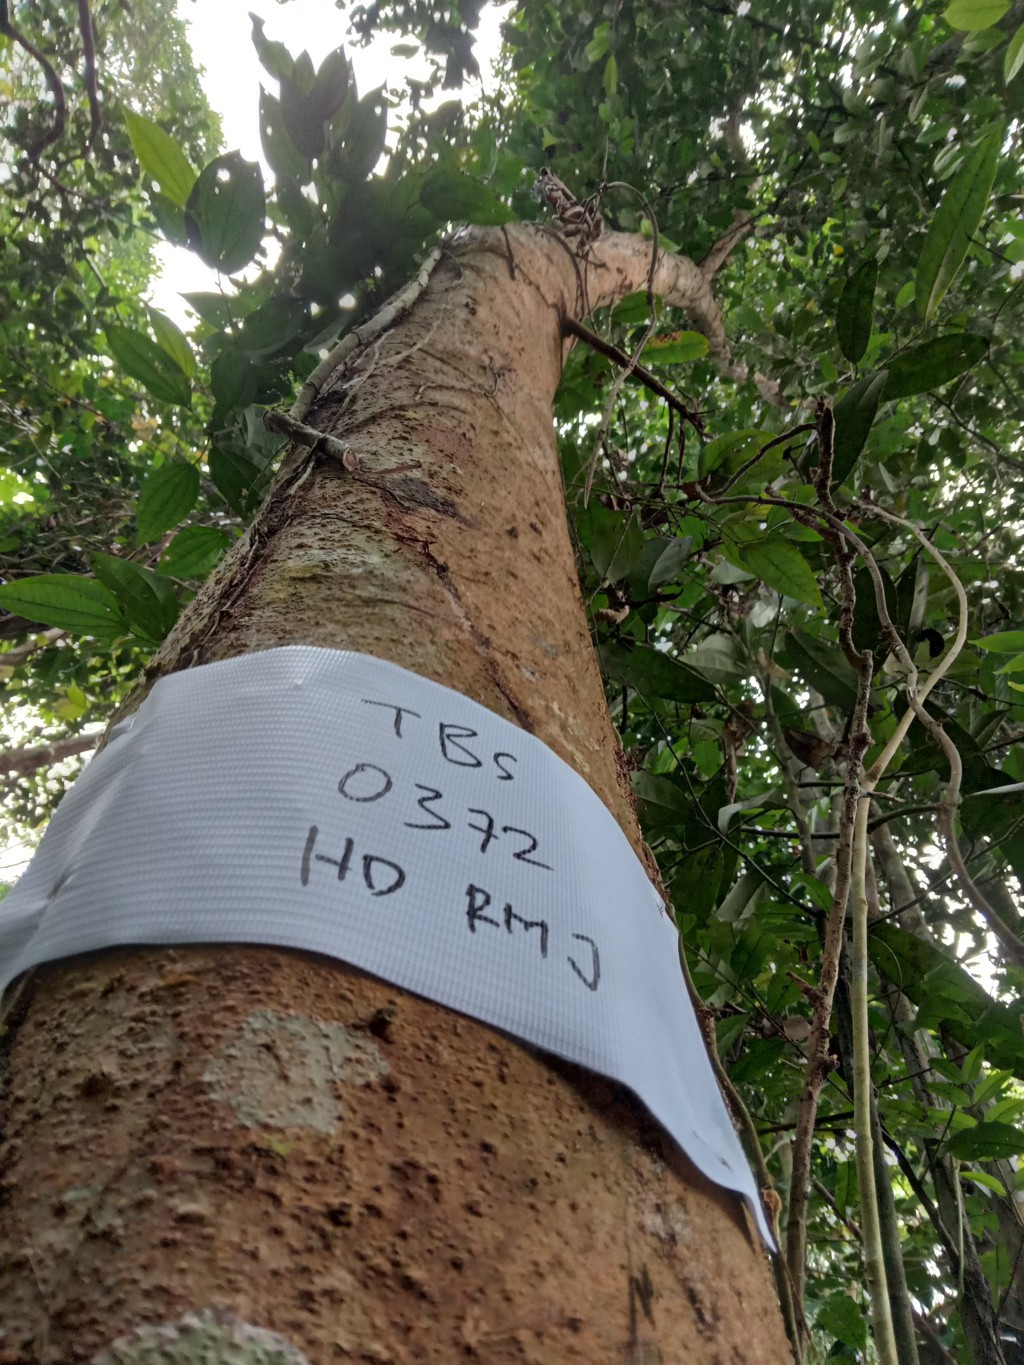 TBS
0372
HD RMJ